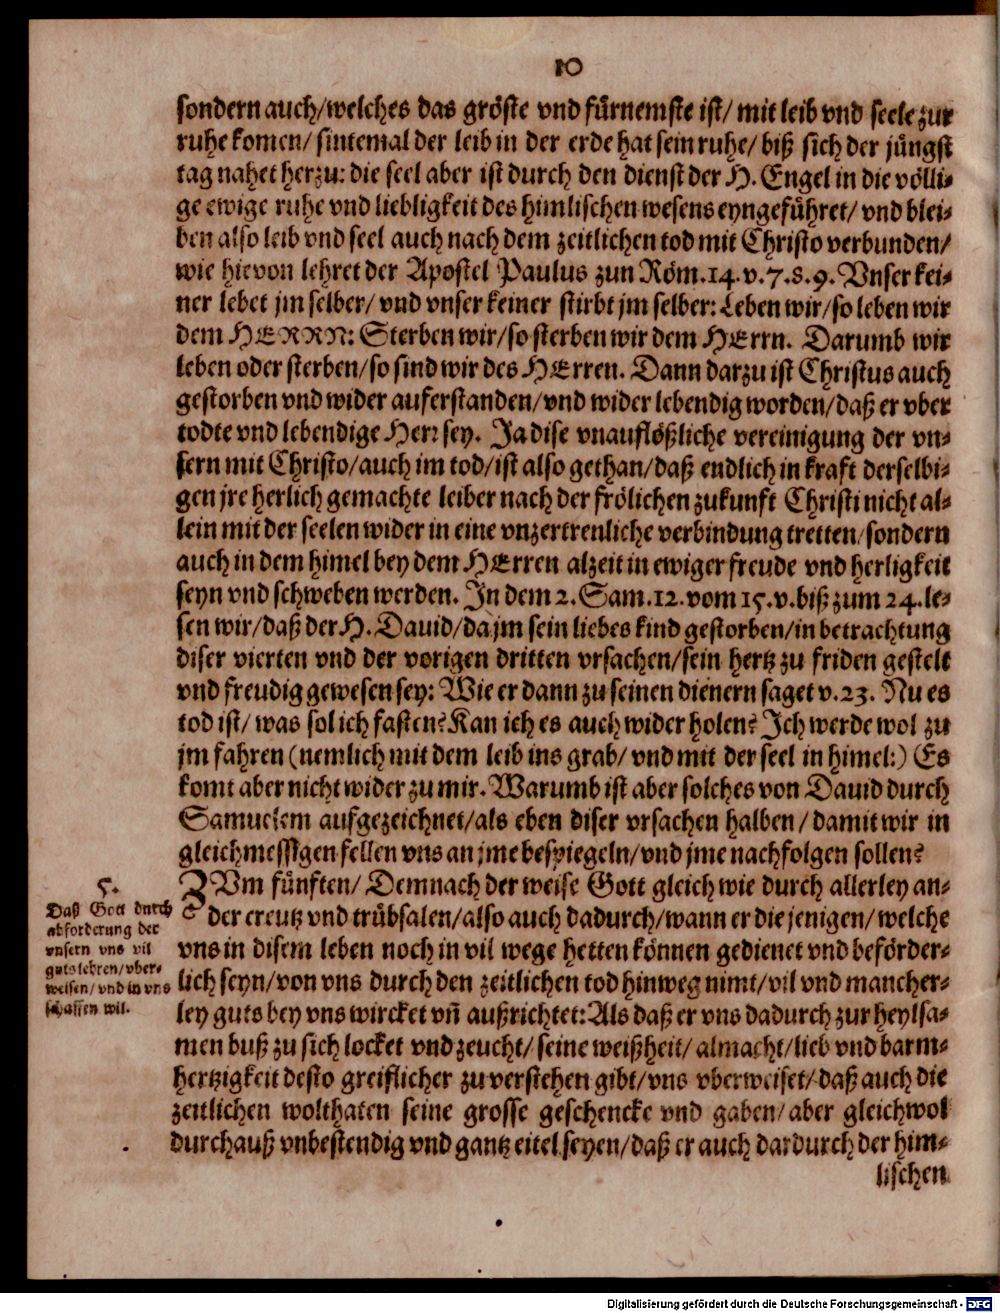 10
sondern auch/welches das gröste vnd fürnemste ist/ mit leib vnd seele zur
ruhe komen/ sintemal der leib in der erde hat sein ruhe/ biß sich der jüngst
tag nahet herzu: die seel aber ist durch den dienst der H. Engel in die völli-
ge ewige ruhe vnd liebligkeit des himlischen wesens eyngeführet/ vnd blei-
ben also leib vnd seel auch nach dem zeitlichen tod mit Christo verbunden/
wie hievon lehret der Apostel Paulus zun Röm. 14. v. 7. 8. 9. Vnser kei-
ner lebet jm selber/ vnd vnser keiner stirbt jm selber: Leben wir/ so leben wir
dem HERRN: Sterben wir/ so sterben wir dem HErrn. Darumb wir
leben oder sterben/ so sind wir des HErren. Dann darzu ist Christus auch
gestorben vnd wider auferstanden/ vnd wider lebendig worden/ daß er vber
todte vnd lebendige Herr sey. Ja dise vnauflößliche vereinigung der vn-
sern mit Christo/ auch im tod/ ist also gethan/ daß endlich in kraft derselbi-
gen jre herlich gemachte leiber nach der frölichen zukunft Christi nicht al-
lein mit der seelen wider in eine vnzertrenliche verbindung tretten/ sondern
auch in dem himel bey dem HErren alzeit in ewiger freude vnd herligkeit
seyn vnd schweben werden. In dem 2. Sam. 12. vom 15. v. biß zum 24. le-
sen wir/ daß der H. Dauid/ da jm sein liebes kind gestorben/ in betrachtung
diser vierten vnd der vorigen dritten vrsachen/ sein hertz zu friden gestelt
vnd freudig gewesen sey: Wie er dann zu seinen dienern saget v. 23. Nu es
tod ist/ was sol ich fasten? Kan ich es auch wider holen? Ich werde wol zu
jm fahren (nemlich mit dem leib ins grab/ vnd mit der seel in himel:) Es
komt aber nicht wider zu mir. Warumb ist aber solches von Dauid durch
Samuelem aufgezeichnet/ als eben diser vrsachen halben/ damit wir in
gleichmessigen fellen vns an jme bespiegeln/ vnd jme nachfolgen sollen?
5.
Daß Gott durch
abforderung der
vnsern vns vil
guts lehren/ vber-
weisen/ vnd in vns
schaffen wil.
ZVm fünften/ Demnach der weise Gott gleich wie durch allerley an-
der creutz vnd trübsalen/ also auch dadurch/ wann er die jenigen/ welche
vns in disem leben noch in vil wege hetten können gedienet vnd beförder-
lich seyn/ von vns durch den zeitlichen tod hinweg nimt/ vil vnd mancher-
ley guts bey vns wircket vñ außrichtet: Als daß er vns dadurch zur heylsa-
men buß zu sich locket vnd zeucht/ seine weißheit/ almacht/ lieb vnd barm-
hertzigkeit desto greiflicher zu verstehen gibt/ vns vberweiset/ daß auch die
zeitlichen wolthaten seine grosse geschencke vnd gaben/ aber gleichwol
durchauß vnbestendig vnd gantz eitel seyen/ daß er auch dardurch der him-
lischen
Digitalisierung gefördert durch die Deutsche Forschungsgemeinschaft - DFG